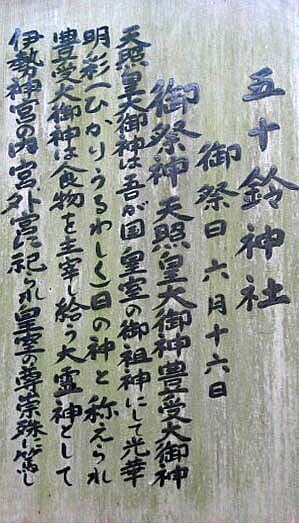 五十鈴神社
御祭日 六月十六日
御祭神 天照皇大御神豊受大御神
天照皇大御神は吾が国皇室の御祖神にして光華
明彩(ひかりうるわしく)日の神と称えられ
豊受大御神は食物を主宰し給う大霊神として
伊勢神宮の内宮外宮に祀られ皇室の尊崇殊に篤し